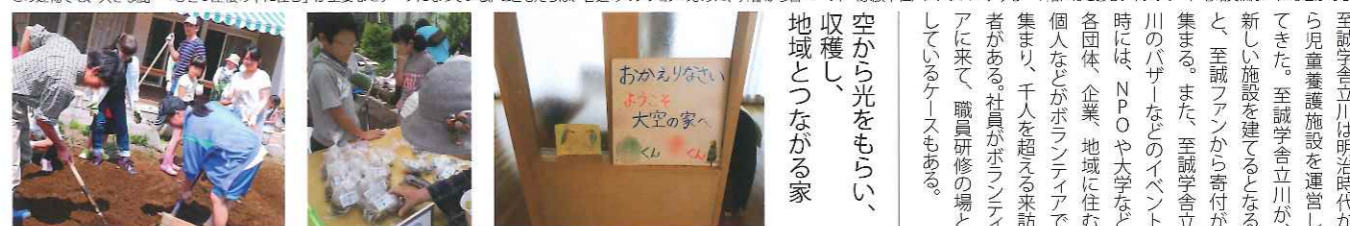 至誠学舎立川は明治時代か
ら児童養護施設を運営し
てきた。至誠学舎立川が、
新しい施設を建てるとなる
と、至誠ファンから寄付が
集まる。また、至誠学舎立
川のバザーなどのイベント
時には、NPOや大学など
各団体、企業、地域に住む
個人などがボランティアで
集まり、千人を超える来訪
者がある。社員がボランティ
アに来て、職員研修の場と
しているケースもある。
空から光をもらい、
収穫し、
地域とつながる家
おかえりなさい
ようこそ
大空の家へ
くん
くん